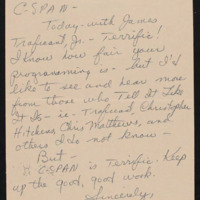 C-SPAN -
Today - with James
Traficant, Jr. - Terrific!
I know how fair your
Programming is - but I'd
like to see and hear more
from those who Tell It Like
It Is - ie - Traficant, Christopher
Hitchens, Chris Matthews, and
others I do not know -
But -
C-SPAN is Terrific. Keep
up the good, good work.
Sincerely,